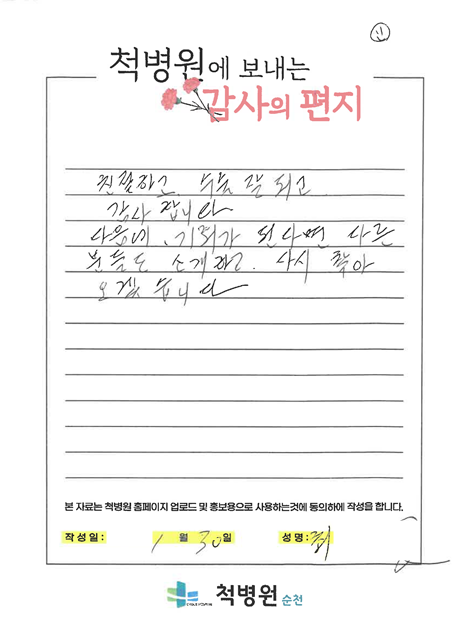 척병원에 보내는
감사의 편지
친절하고 수술 잘 되고
감사 합니다
다음에 기회가 된다면 다른
분들도 소개하고. 다시 찾아
오겠습니다
본 자료는 척병원 홈페이지 업로드 및 홍보용으로 사용하는것에 동의하에 작성을 합니다.
작성일: 1월 30일 성명:
척병원 순천